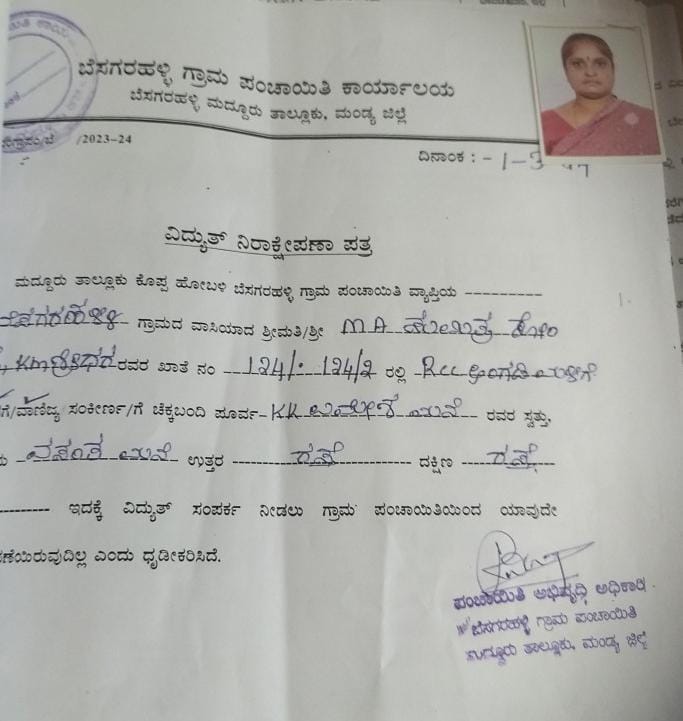 ಬೆಸಗರಹಳ್ಳಿ ಗ್ರಾಮ ಪಂಚಾಯಿತಿ ಕಾರ್ಯಾಲಯ
ಬೆಸಗರಹಳ್ಳಿ ಮದ್ದೂರು ತಾಲ್ಲೂಕು, ಮಂಡ್ಯ ಜಿಲ್ಲೆ
/2023-24
ದಿನಾಂಕ : - 1-3
ವಿದ್ಯುತ್ ನಿರಾಕ್ಷೇಪಣಾ ಪತ್ರ
ಮದ್ದೂರು ತಾಲ್ಲೂಕು ಕೊಪ್ಪ ಹೋಬಳಿ ಬೆಸಗರಹಳ್ಳಿ ಗ್ರಾಮ ಪಂಚಾಯಿತಿ ವ್ಯಾಪ್ತಿಯ ----------
ಬೆಸಗರಹಳ್ಳಿ ಗ್ರಾಮದ ವಾಸಿಯಾದ ಶ್ರೀಮತಿ/ಶ್ರೀ MA ಕೋಂ
KM ಶ್ರೀಧರ ರವರ ಖಾತೆ ನಂ 124/. 124/2 ರಲ್ಲಿ Rcc ಅಂಗಡಿ ಮಳಿಗೆ
ಗೆ/ವಾಣಿಜ್ಯ ಸಂಕೀರ್ಣ/ಗೆ ಚೆಕ್ಕಬಂದಿ ಪೂರ್ವ- KK ಮನೆ ರವರ ಸ್ವತ್ತು,
ವಸಂತ ಮನೆ ಉತ್ತರ ರಸ್ತೆ ದಕ್ಷಿಣ ರಸ್ತೆ
--------- ಇದಕ್ಕೆ ವಿದ್ಯುತ್ ಸಂಪರ್ಕ ನೀಡಲು ಗ್ರಾಮ ಪಂಚಾಯಿತಿಯಿಂದ ಯಾವುದೇ
ಣೆಯಿರುವುದಿಲ್ಲ ಎಂದು ಧೃಡೀಕರಿಸಿದೆ.
ಪಂಚಾಯಿತಿ ಅಭಿವೃದ್ಧಿ ಅಧಿಕಾರಿ
ಬೆಸಗರಹಳ್ಳಿ ಗ್ರಾಮ ಪಂಚಾಯಿತಿ
ಮದ್ದೂರು ತಾಲ್ಲೂಕು, ಮಂಡ್ಯ ಜಿಲ್ಲೆ